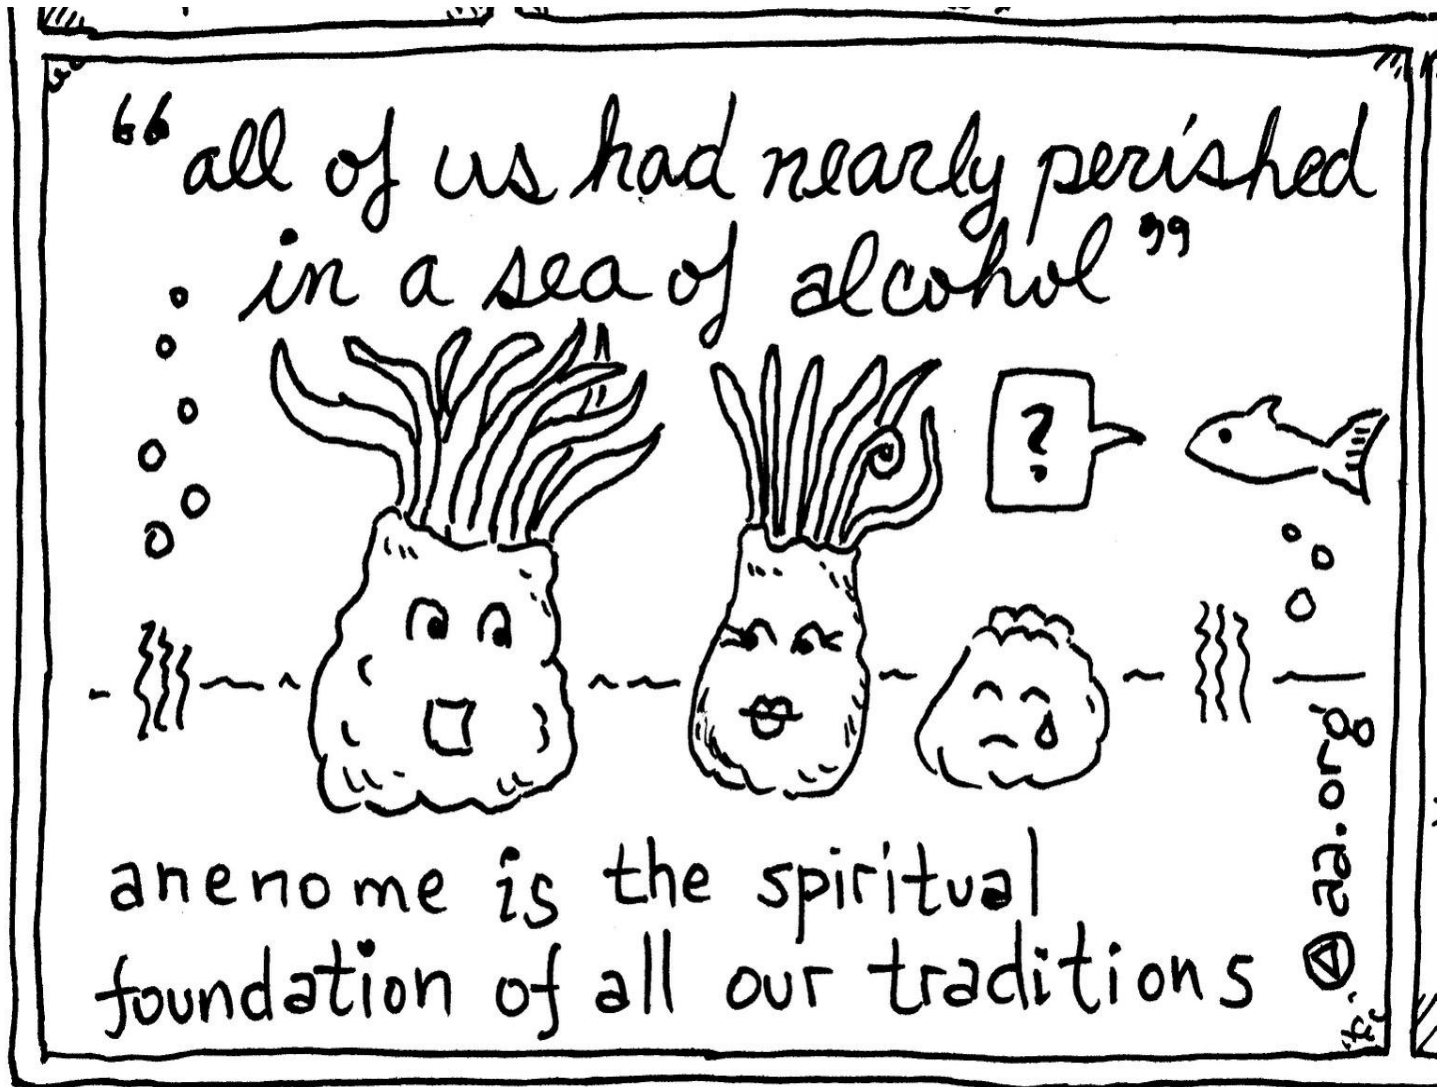 “all of us had nearly perished
in a sea of alcohol”
?
anenome is the spiritual
foundation of all our traditions
aa.org